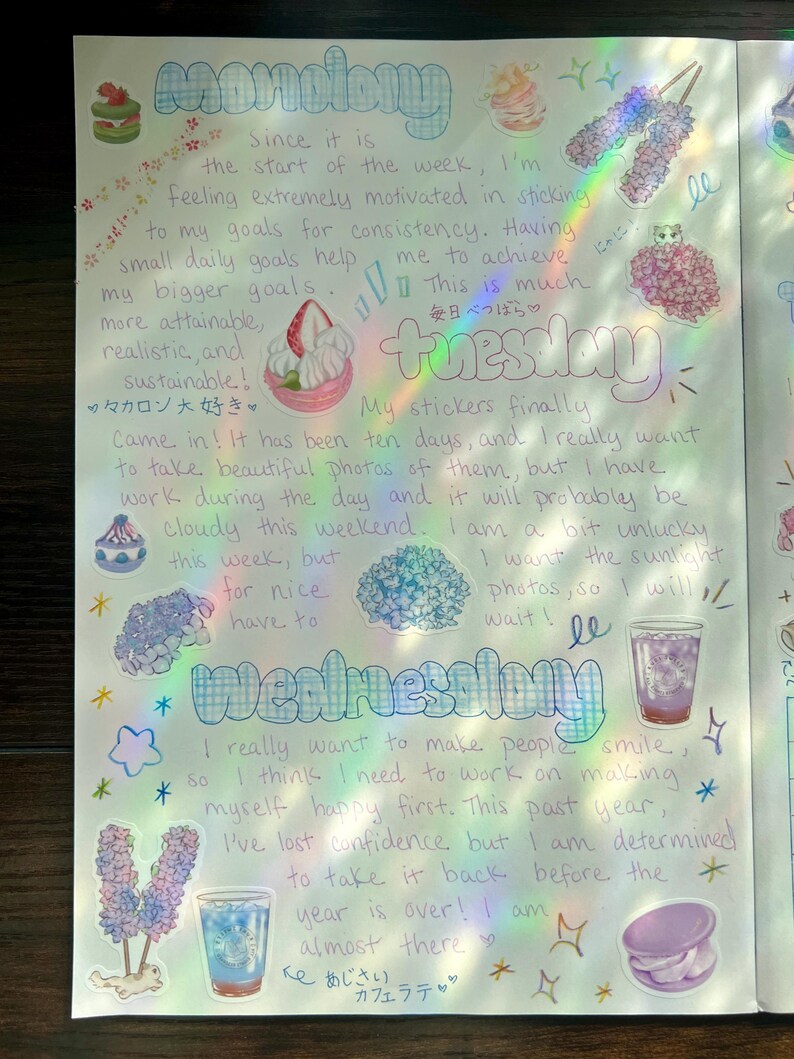 Monday
Since it is
the start of the week, I'm
feeling extremely motivated in sticking
to my goals for consistency. Having
にゃにー!
small daily goals help me to achieve
my bigger goals. This is much
more attainable,
realistic, and
sustainable!
♡マカロン大好き♡
毎日べつばら♡
Tuesday
My stickers finally
came in! It has been ten days, and I really want
to take beautiful photos of them, but I have
work during the day and it will probably be
cloudy this weekend. I am a bit unlucky
this week, but I want the sunlight
for nice photos, so I will
have to wait!
Wednesday
I really want to make people smile,
so I think I need to work on making
myself happy first. This past year,
I've lost confidence but I am determined
to take it back before the
year is over! I am
almost there ♡
あじさい
カフェラテ♡♡